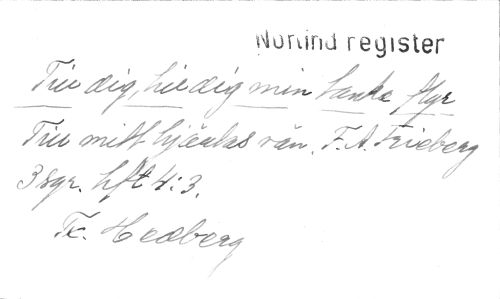 Norlind register
Till dig, till dig min tanke flyr
Till mitt hjärtas vän. F. A. Frieberg
3 sgr. hft 4:3.
Tx. Hedberg